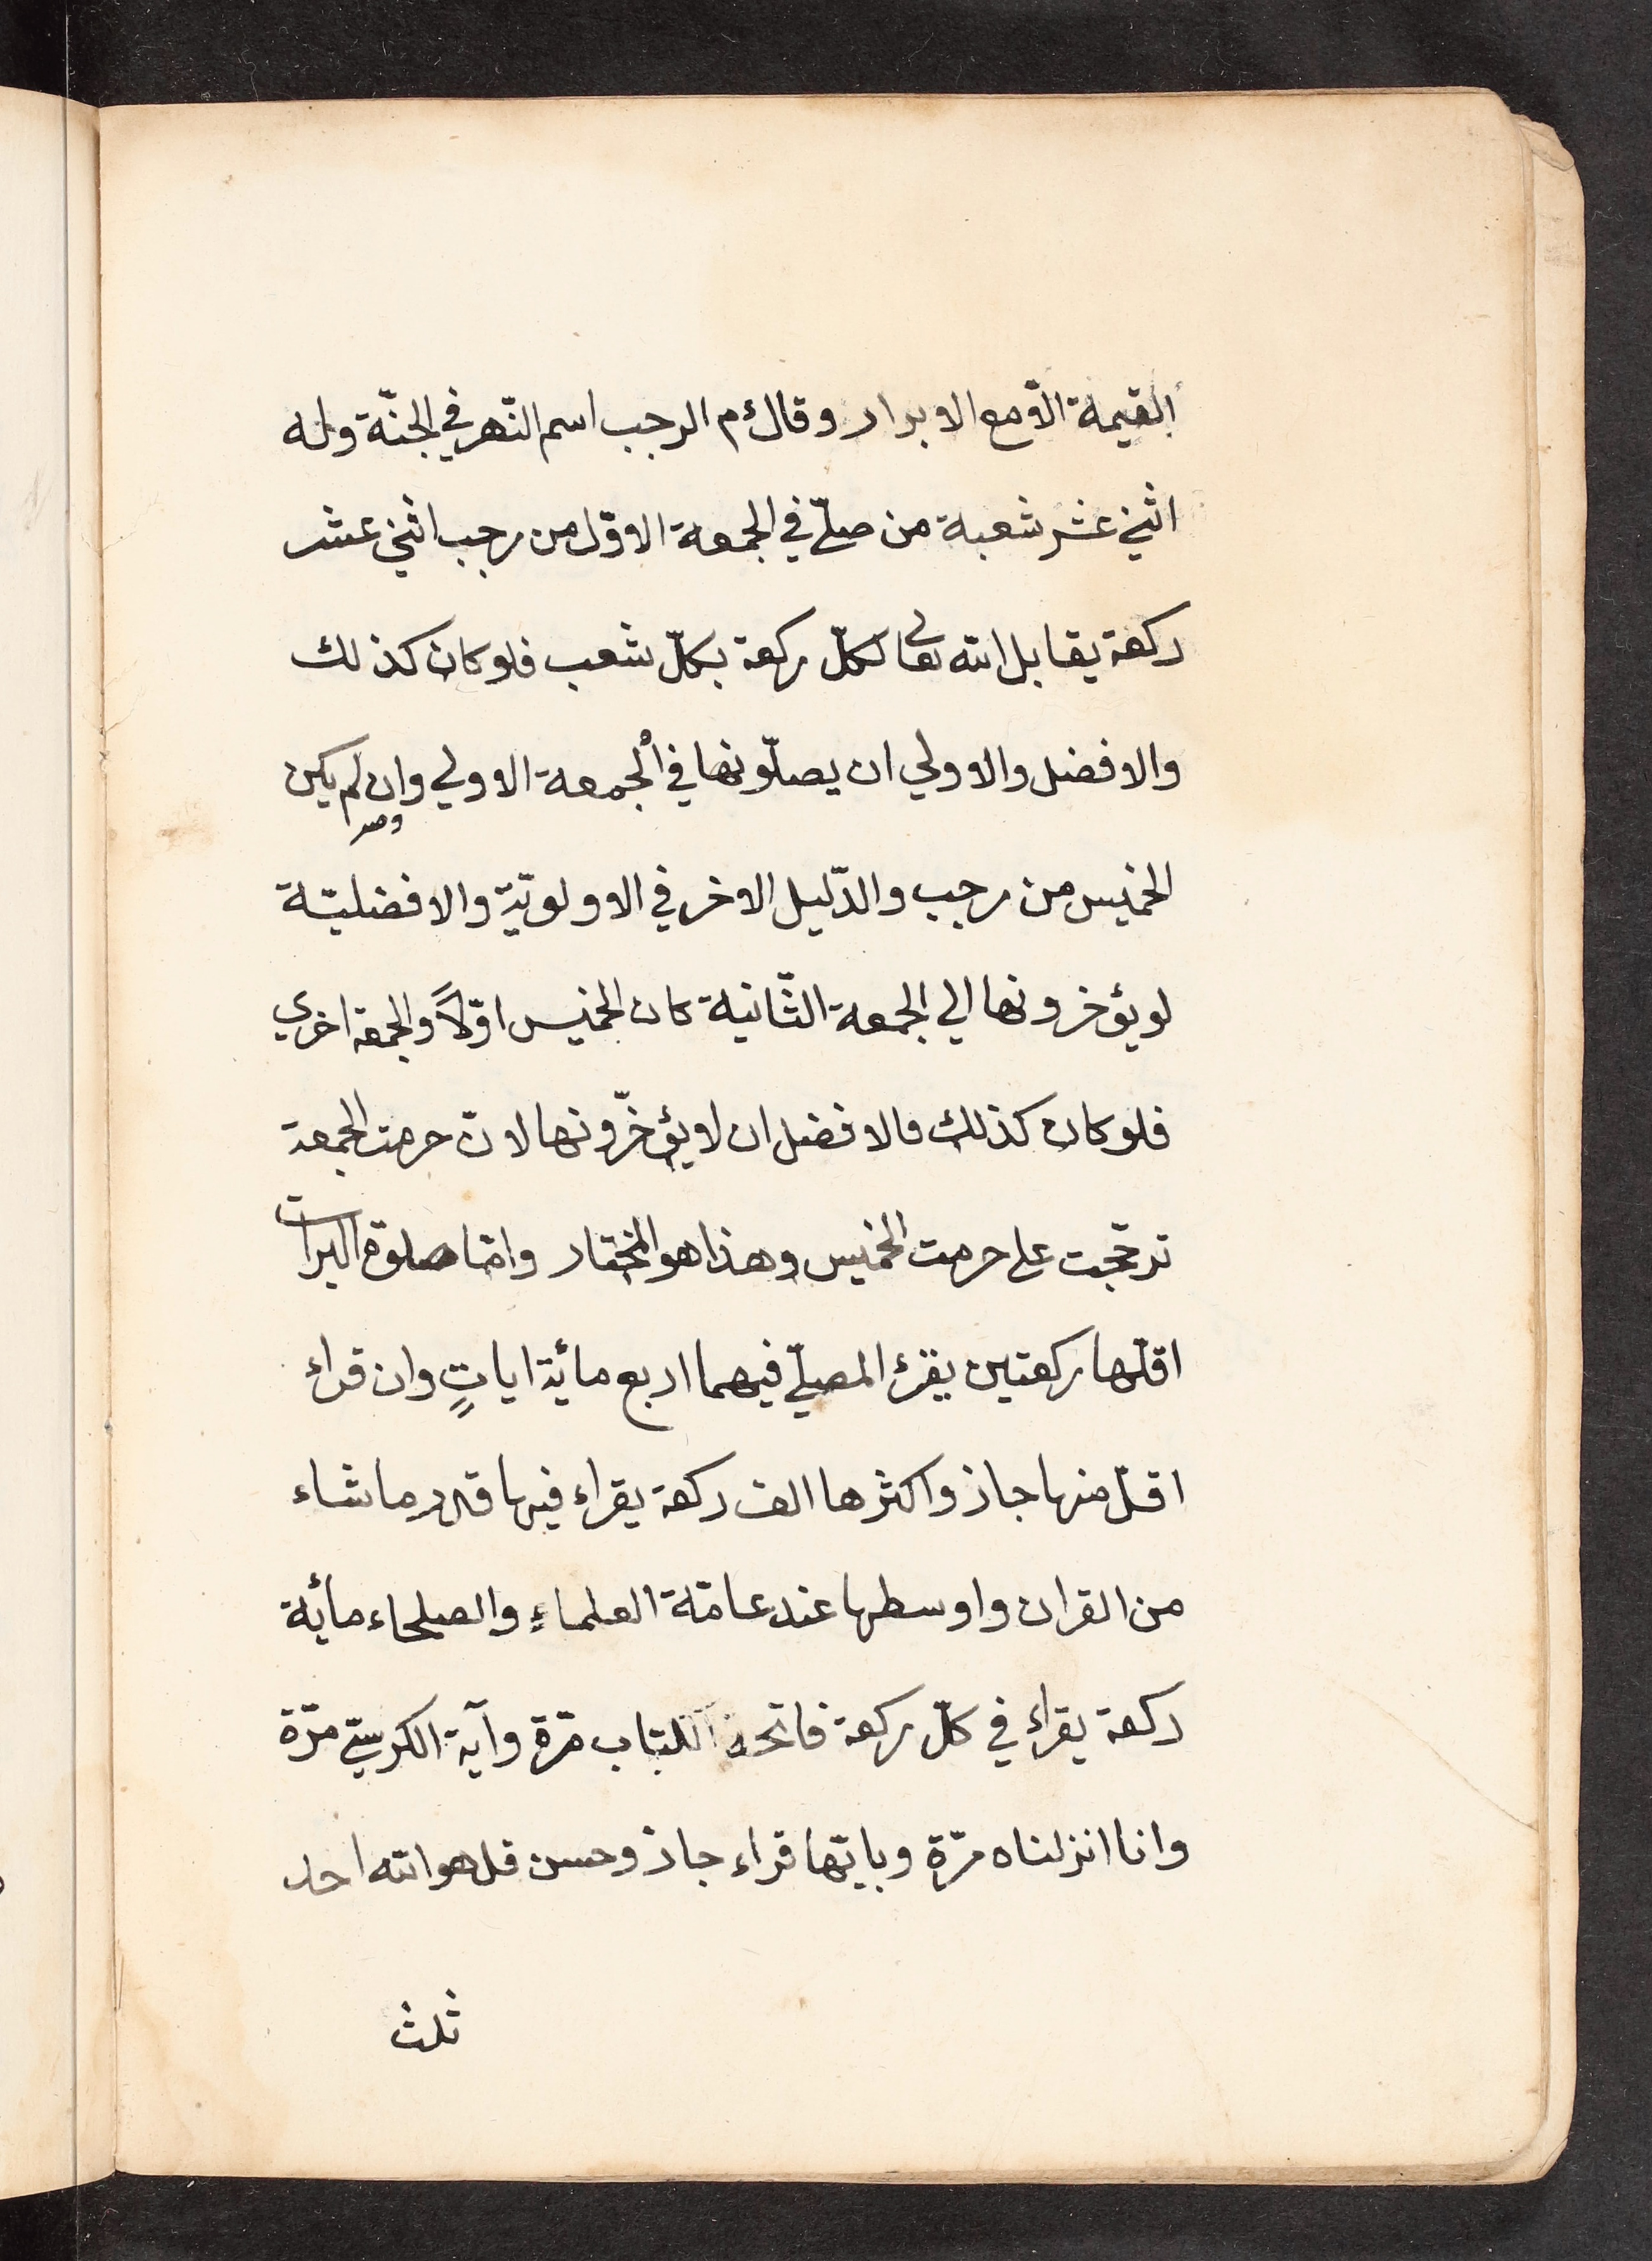 القيمة الّا مع الابرار وقال ءم الرجب اسم النّهر في الجنّة وله
اثني عشر شعبة من صلّي في الجمعة الاوّل من رجب اثني عشر
ركعة يقابل الله تعالي لكلّ ركعة بكلّ شعب فلو كان كذلك
والافضل والاولي ان يصلّونها في الجمعة الاولي وان لم يكن
الخميس من رجب والدّليل الاخر في الاولويّة والافضليّة
لو يؤخرونها الي الجمعة الثّانية كان الخميس اوّلاً والجمعة اخري
فلو كان كذلك فالافضل ان لا يؤخّرونها لانّ حرمت الجمعة
ترجّحت علي حرمت الخميس وهذا هو المختار وامّا صلوة البرات
اقلّها ركعتين يقرء المصلّي فيهما اربع مائة اياتٍ وان قراء
اقلّ منها جاز واكثرها الف ركعة يقراء فيها قدر ما شاء
من القران واوسطها عند عامّة العلماءِ والصلحاء مائة
ركعة يقراء في كلّ ركعة فاتحة الكتاب مرّة وآية الكرسيّ مرّة
وانا انزلناه مرّة وبايّها قراء جاز وحسن قل هو الله احد
ثلث